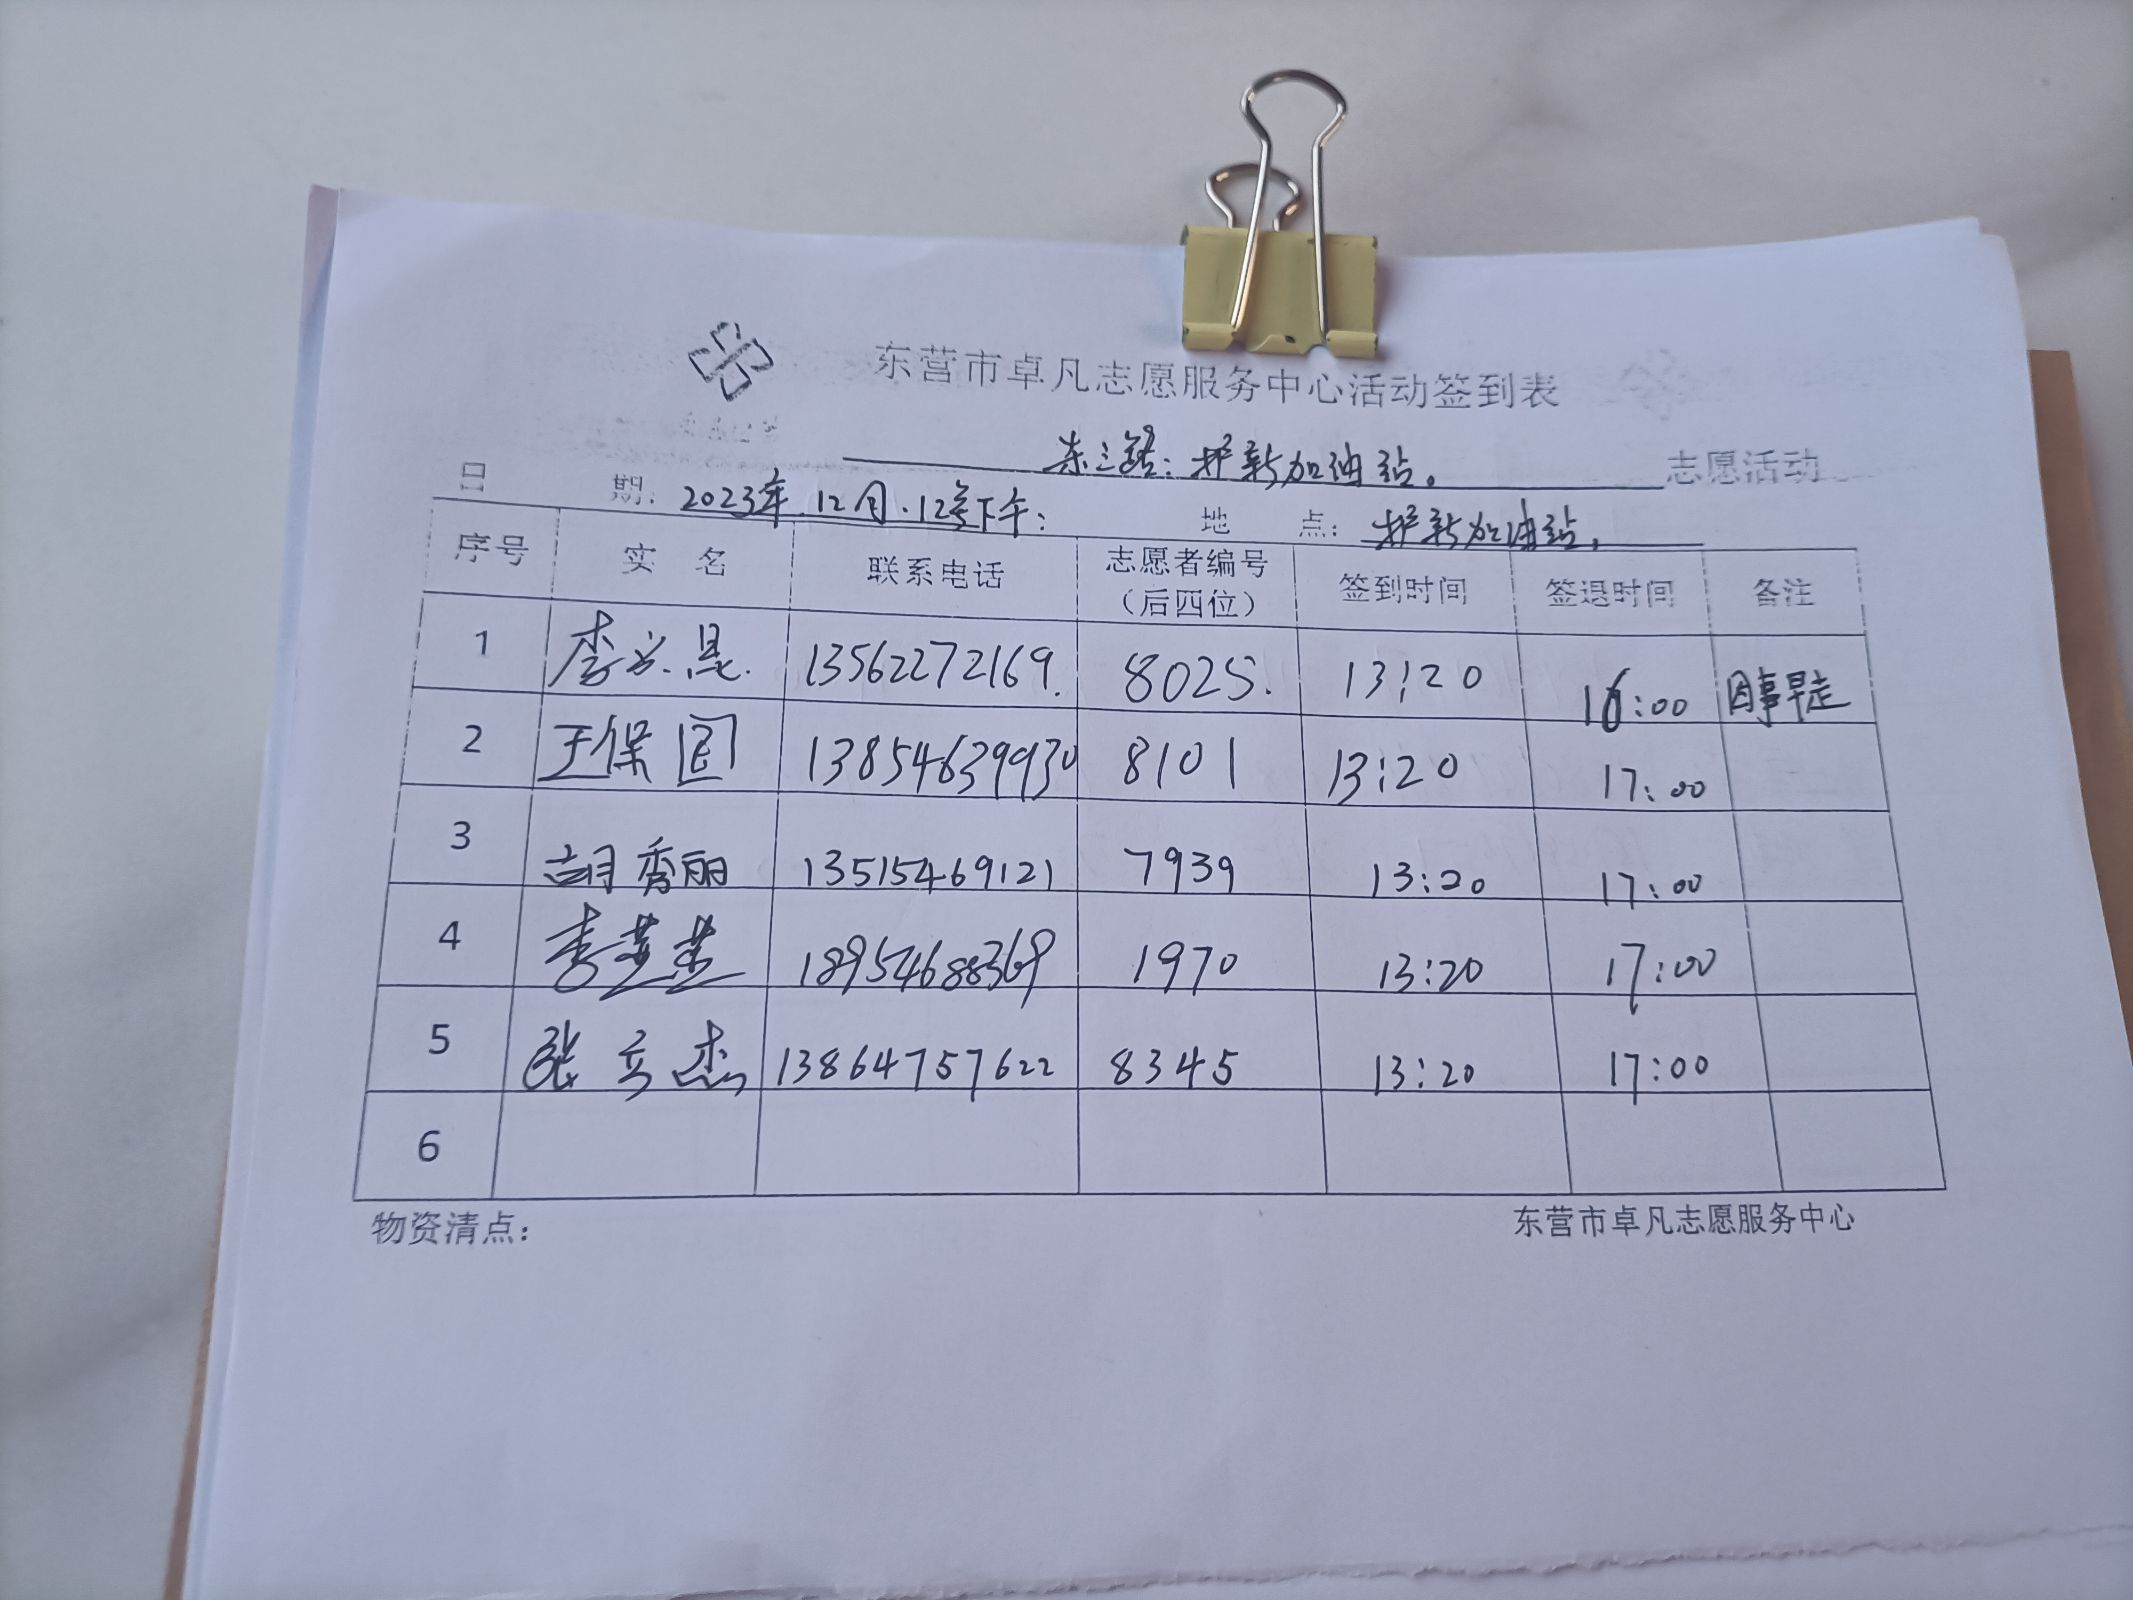 东营市卓凡志愿服务中心活动签到表
东三路:护新加油站。 志愿活动
日 期: 2023年.12月.12号下午: 地 点: 护新加油站。
序号 实 名 联系电话 志愿者编号(后四位) 签到时间 签退时间 备注
1 李义晃. 13562272169. 8025. 13:20 16:00 因事早走
2 王保国 13854639930 8101 13:20 17:00
3 胡秀丽 13515469121 7939 13:20 17:00
4 李 18954688369 1970 13:20 17:00
5 张立杰 13864757622 8345 13:20 17:00
6
物资清点: 东营市卓凡志愿服务中心